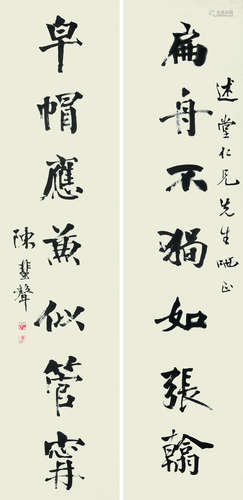 述堂仁兄先生哂正
扁舟不獨如張翰
皁帽應兼似管甯
陳蜚聲